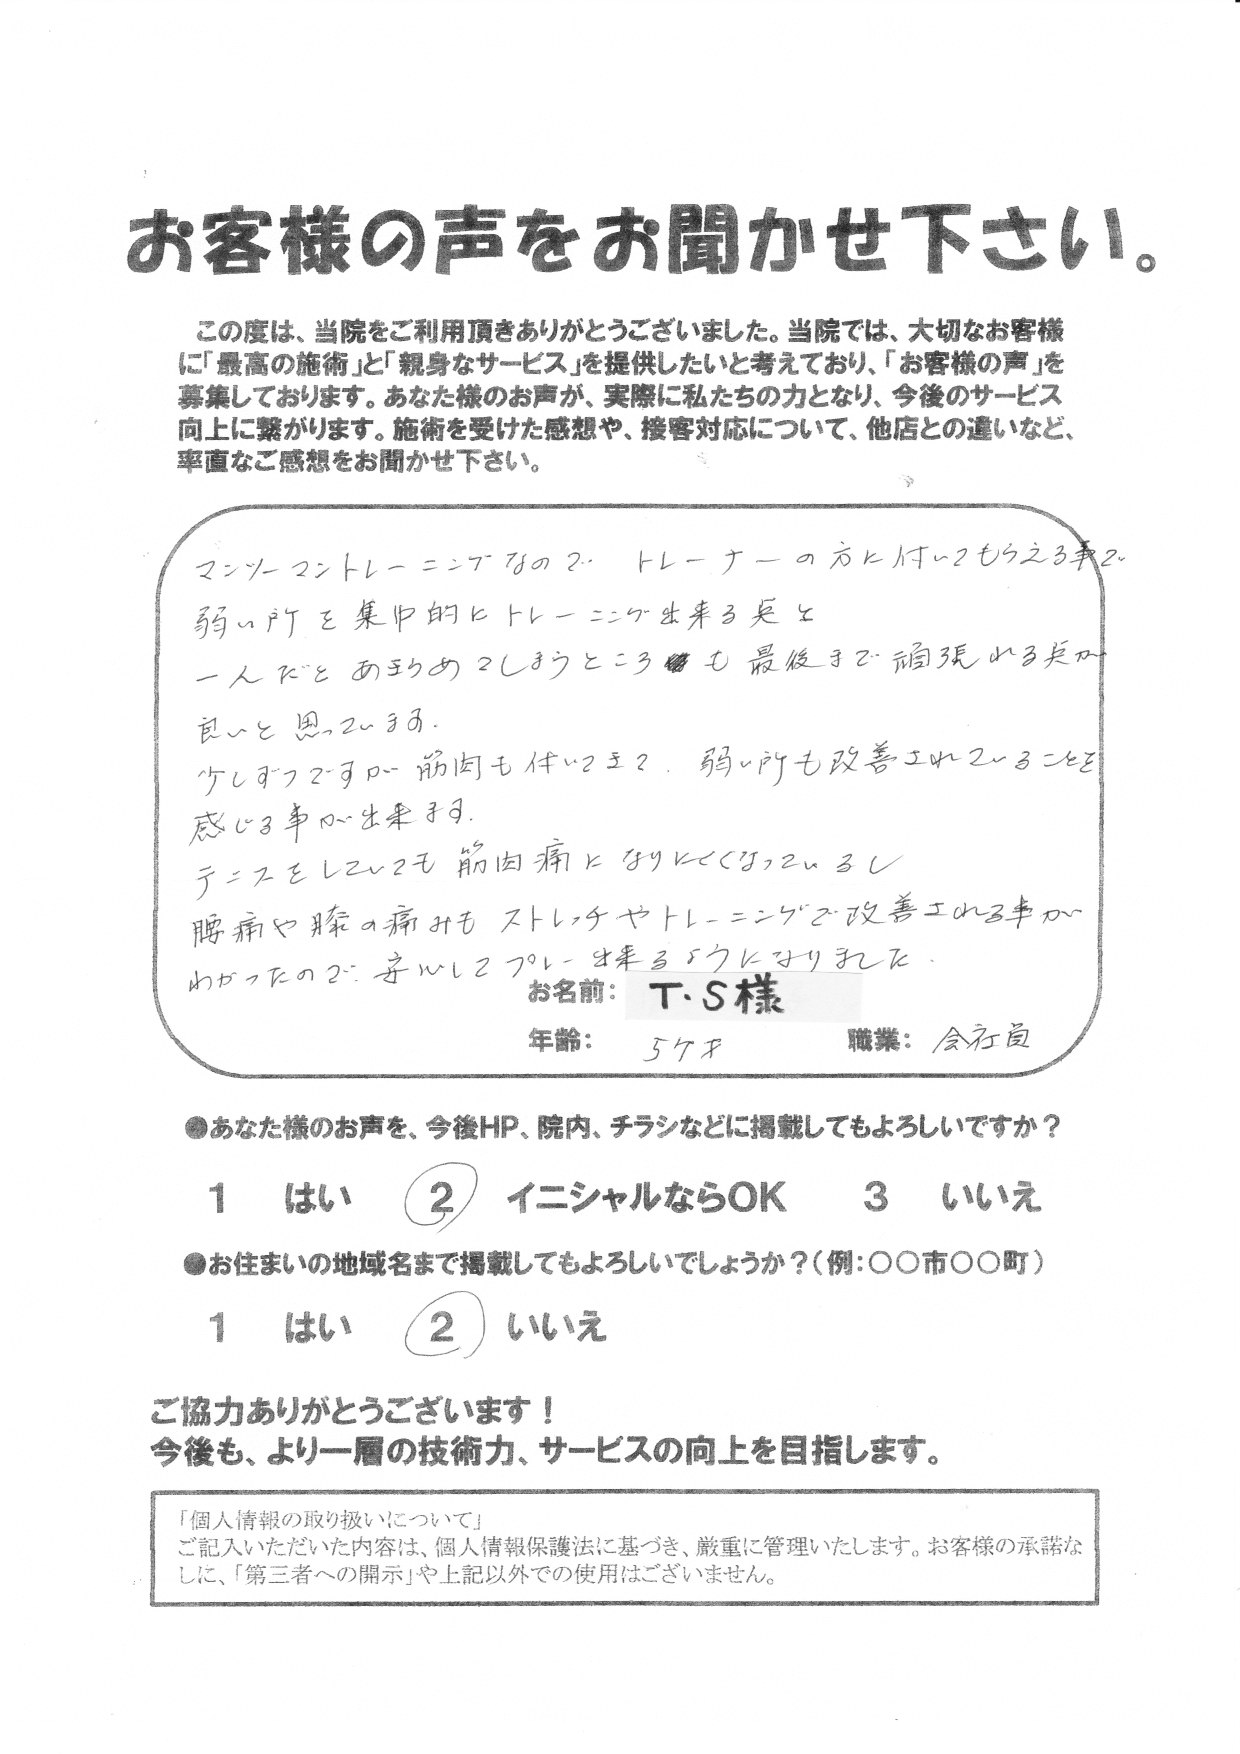 お客様の声をお聞かせ下さい。
この度は、当院をご利用頂きありがとうございました。当院では、大切なお客様
に「最高の施術」と「親身なサービス」を提供したいと考えており、「お客様の声」を
募集しております。あなた様のお声が、実際に私たちの力となり、今後のサービス
向上に繋がります。施術を受けた感想や、接客対応について、他店との違いなど、
率直なご感想をお聞かせ下さい。
マンツーマントレーニングなので トレーナーの方に付いてもらえる事で
弱い所を集中的にトレーニング出来る点と
一人だとあきらめてしまうところも最後まで頑張れる点が
良いと思っています.
少しずつですが筋肉も付いてきて、弱い所も改善されていることを
感じる事が出来ます.
テニスをしていても筋肉痛になりにくくなっているし
腰痛や膝の痛みもストレッチやトレーニングで改善される事が
わかったので、安心してプレー出来るようになりました.
お名前： T・S様
年齢： 才 職業： 会社員
●あなた様のお声を、今後HP、院内、チラシなどに掲載してもよろしいですか？
1 はい 2 イニシャルならOK 3 いいえ
●お住まいの地域名まで掲載してもよろしいでしょうか？（例：〇〇市〇〇町）
1 はい 2 いいえ
ご協力ありがとうございます！
今後も、より一層の技術力、サービスの向上を目指します。
「個人情報の取り扱いについて」
ご記入いただいた内容は、個人情報保護法に基づき、厳重に管理いたします。お客様の承諾な
しに、「第三者への開示」や上記以外での使用はございません。